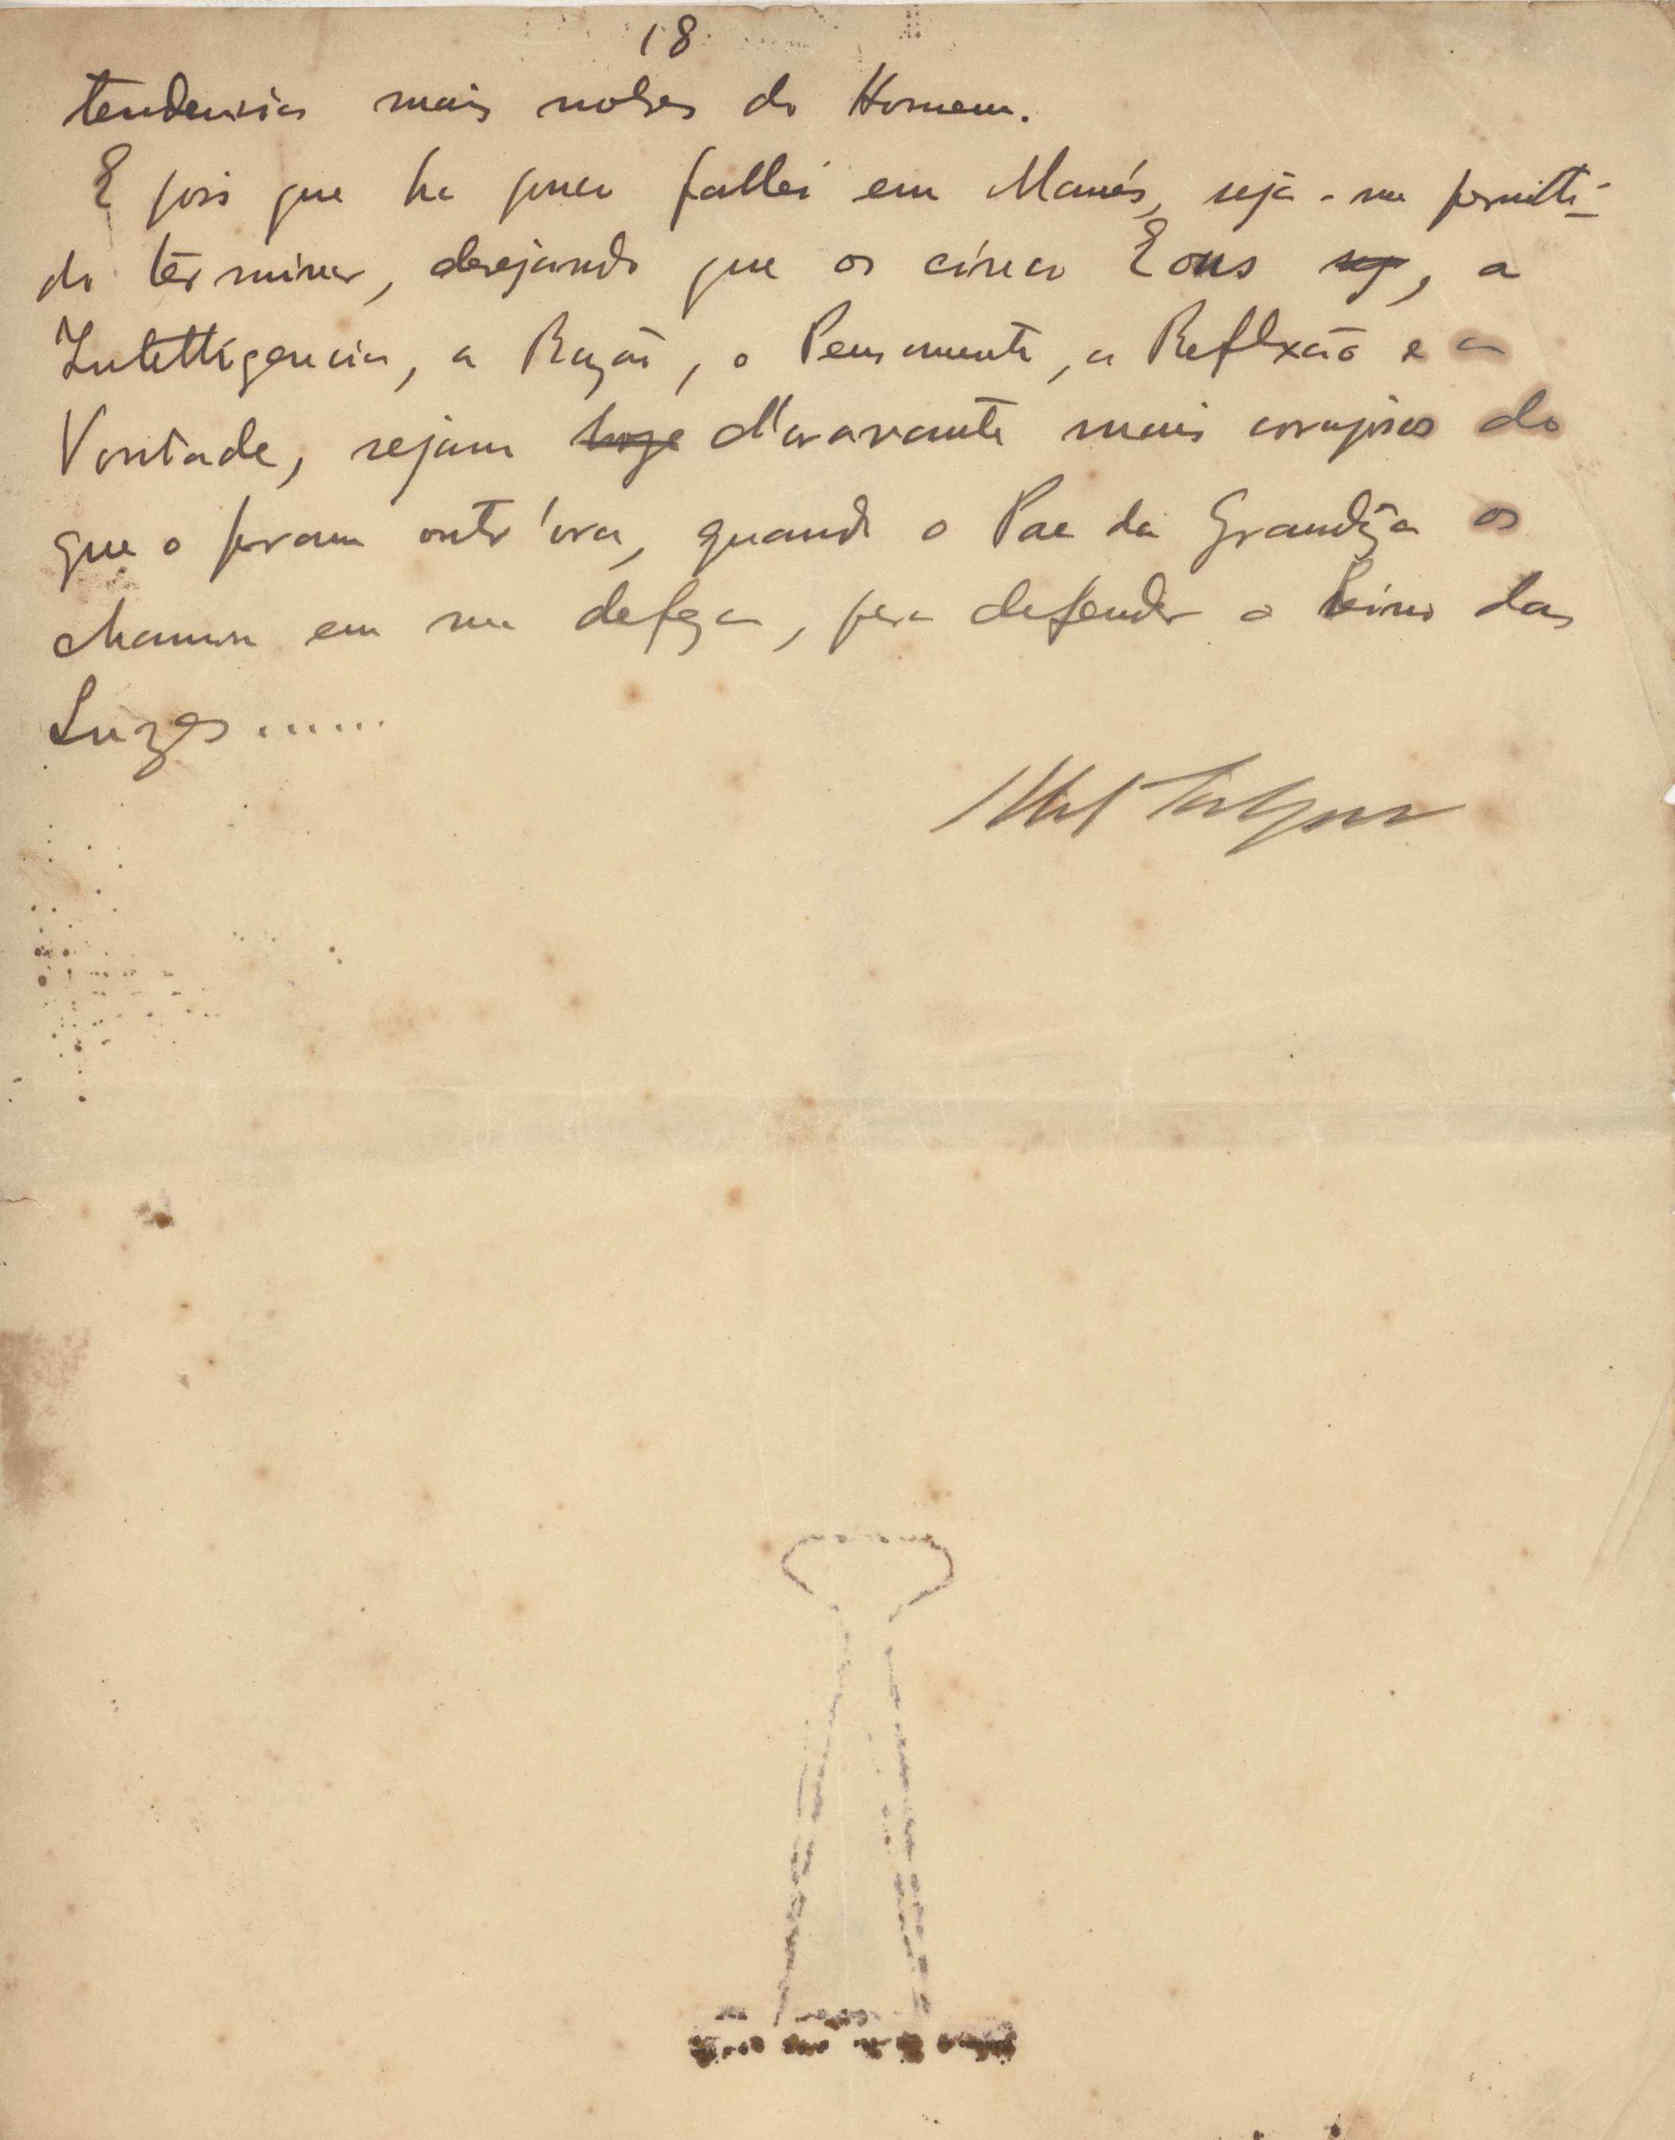 18
tendencias mais nobres do Homem.
E pois que ha pouco fallei em Manés, seja-me permitti-
do terminar, desejando que os cinco Eons, a
Intelligencia, a Razão, o Pensamento, a Reflexão e a
Vontade, sejam hoje d'oravante mais corajosos do
que o foram outr'ora, quando o Pae da Grandeza os
chamou em sua defeza, para defender o Reino das
Luzes......